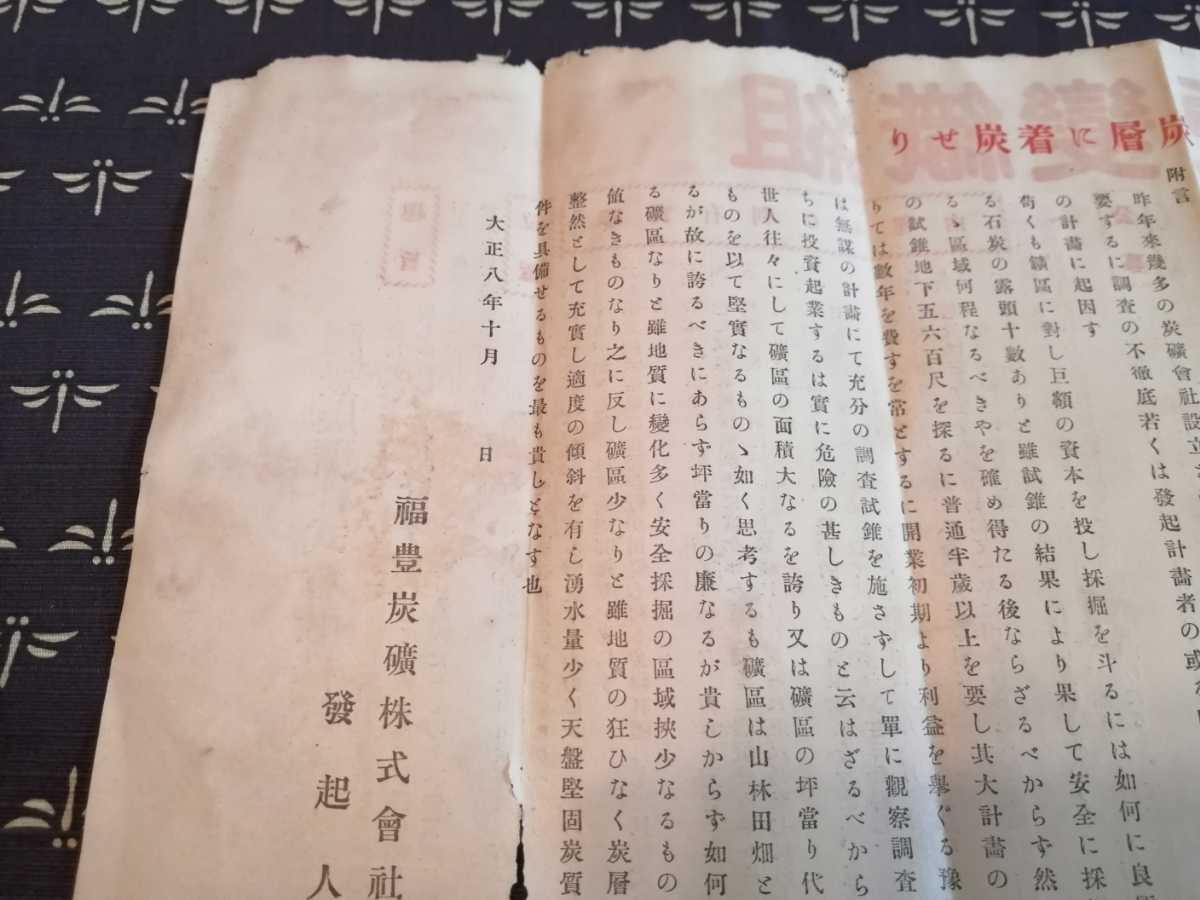 炭層に着炭せり
附言
昨年來幾多の炭礦會社設立
要するに調査の不徹底若くは發起計畫者の或
の計畫に起因す
苟くも鑛區に對し巨額の資本を投し採掘を斗るには如何に良
る石炭の露頭十數ありと雖試錐の結果により果して安全に採
る區域何程なるべきやを確め得たる後ならざるべからず然
の試錐地下五六百尺を探るに普通半歳以上を要し其大計畫の
りては數年を費すを常とするに開業初期より利益を擧ぐる豫
は無謀の計畫にて充分の調査試錐を施さずして單に觀察調査
ちに投資起業するは實に危險の甚しきものと云はざるべから
世人往々にして礦區の面積大なるを誇り又は礦區の坪當り代
ものを以て堅實なるものゝ如く思考するも礦區は山林田畑と
るが故に誇るべきにあらず坪當りの廉なるが貴しからず如何
る礦區なりと雖地質に變化多く安全採掘の區域挾少なるもの
値なきものなり之に反し礦區少なりと雖地質の狂ひなく炭層
整然として充實し適度の傾斜を有し湧水量少く天盤堅固炭質
件を具備せるものを最も貴しとなす也
大正八年十月 日
福豊炭礦株式會社
發起人